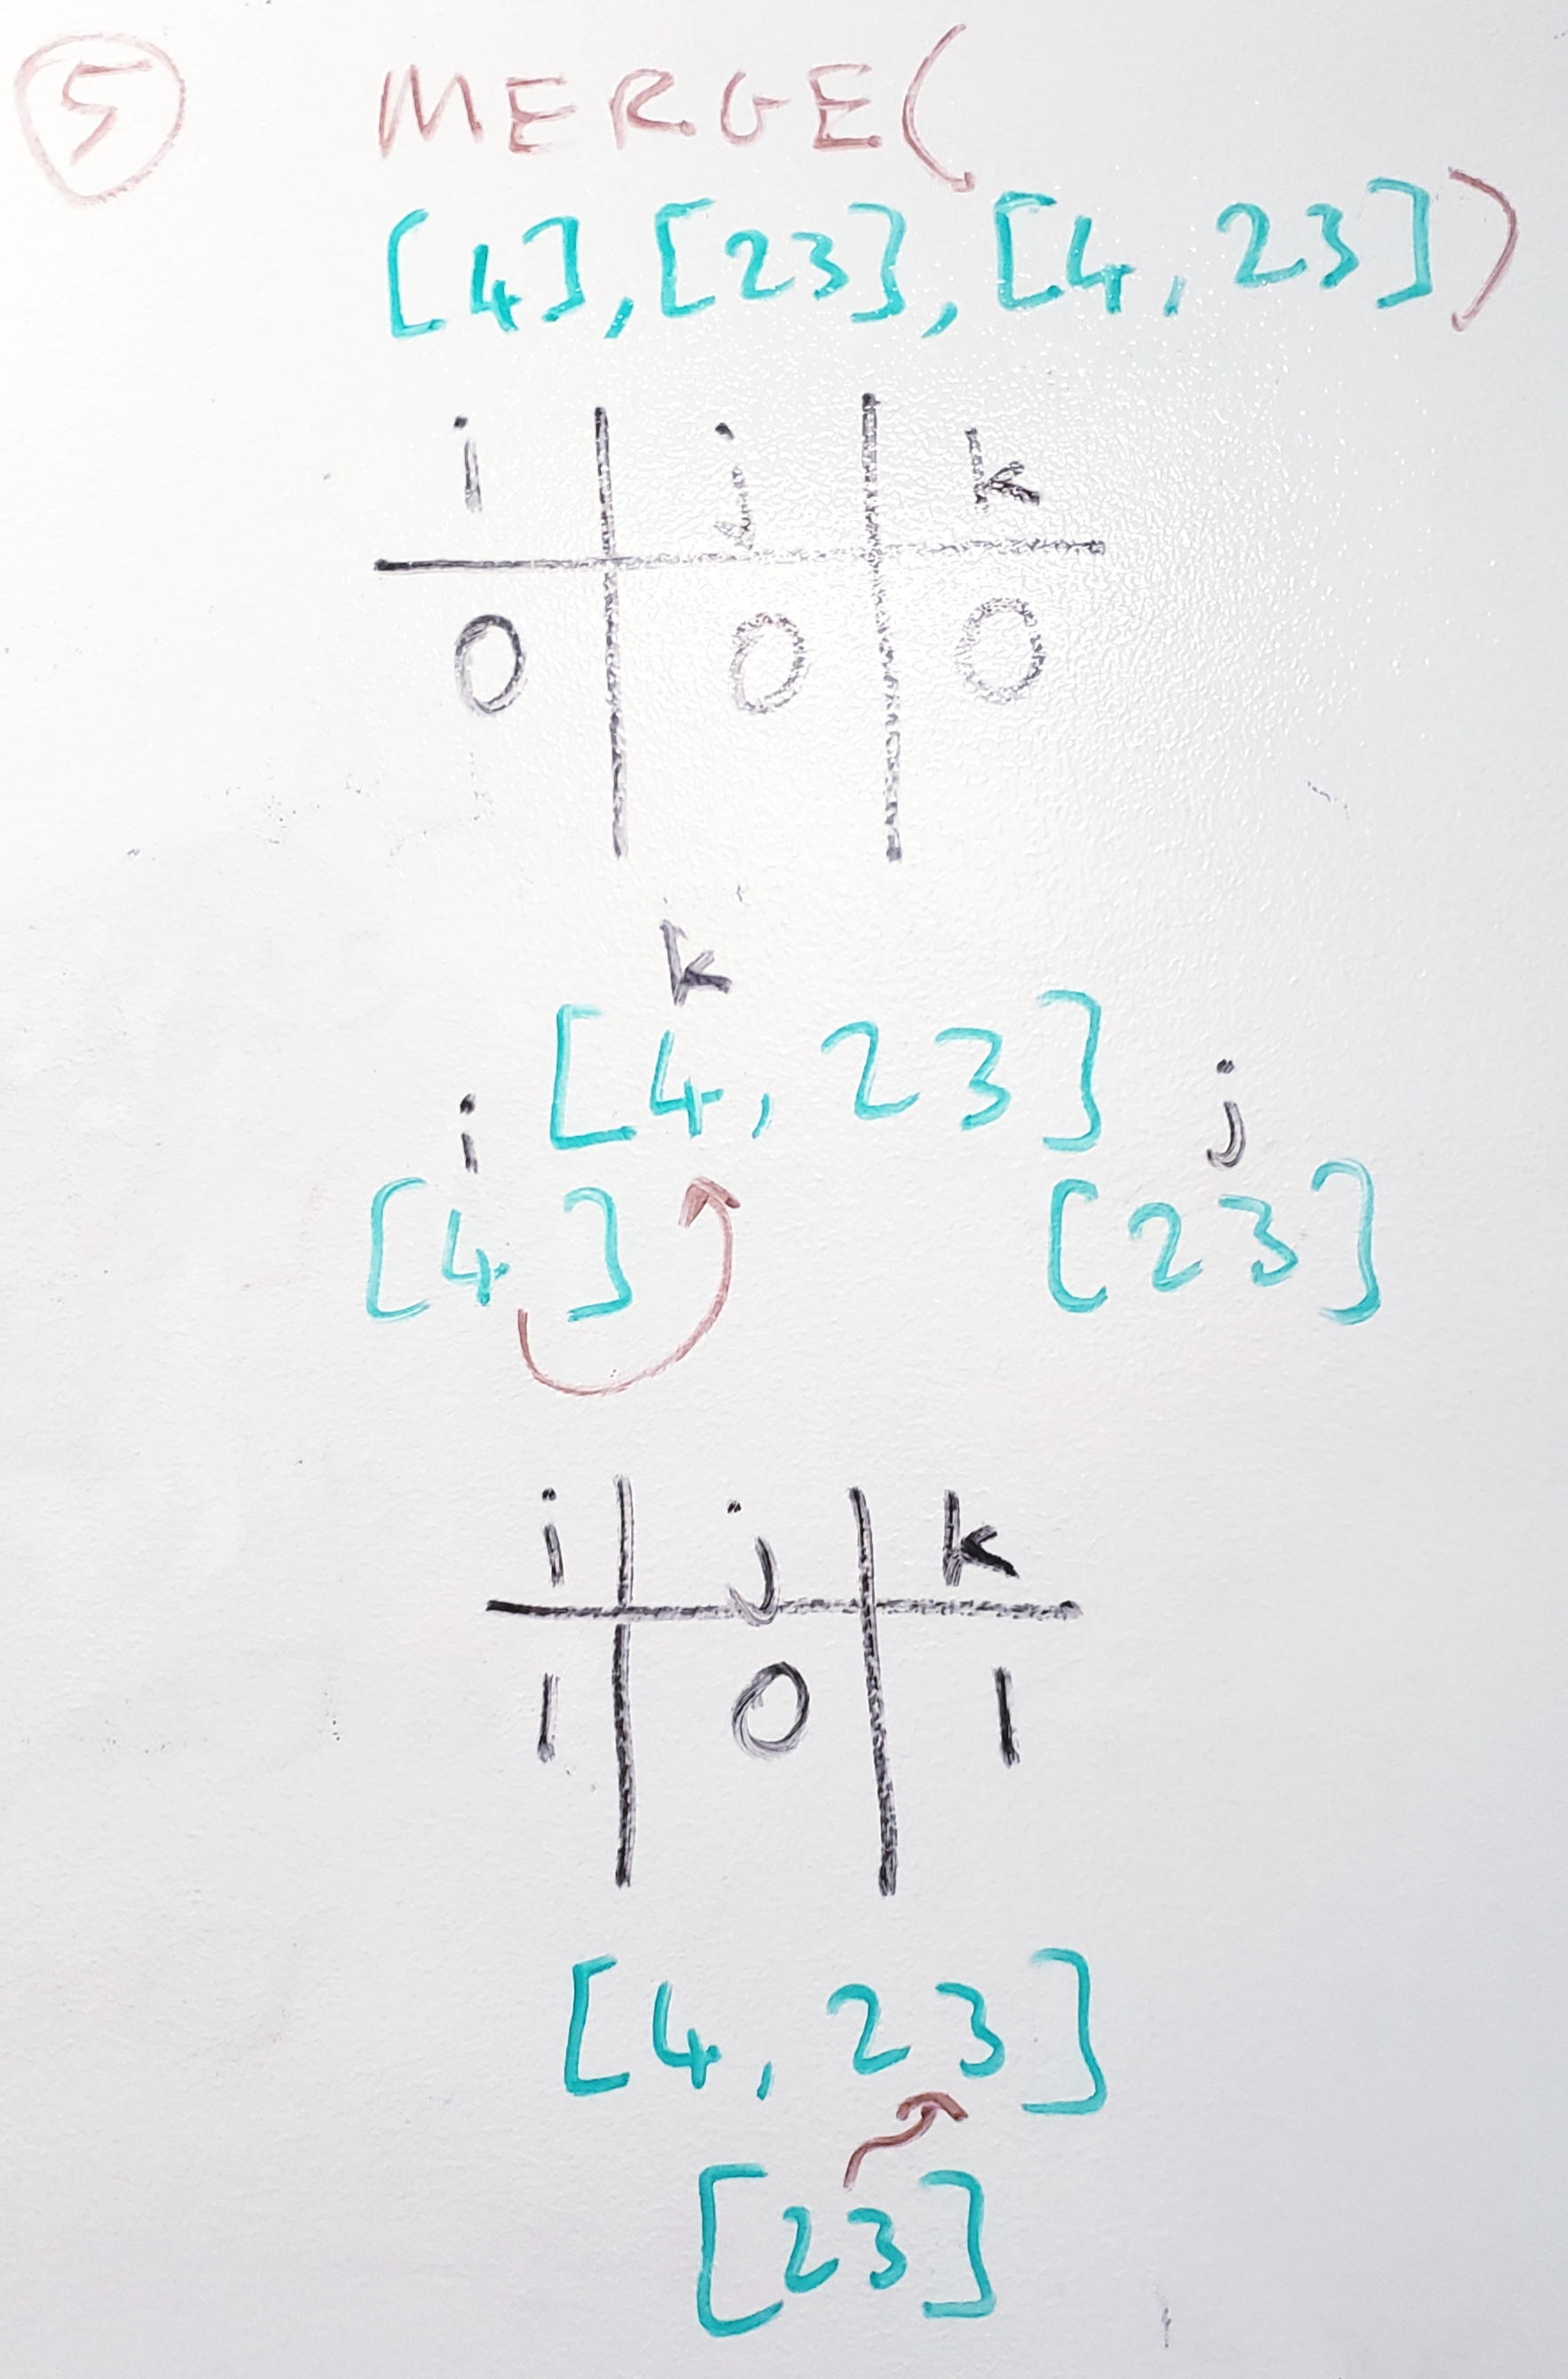 5 MERGE(
[4], [23], [4, 23])
i j k
0 0 0
k
[4, 23]
i j
[4] [23]
i j k
1 0 1
[4, 23]
[23]